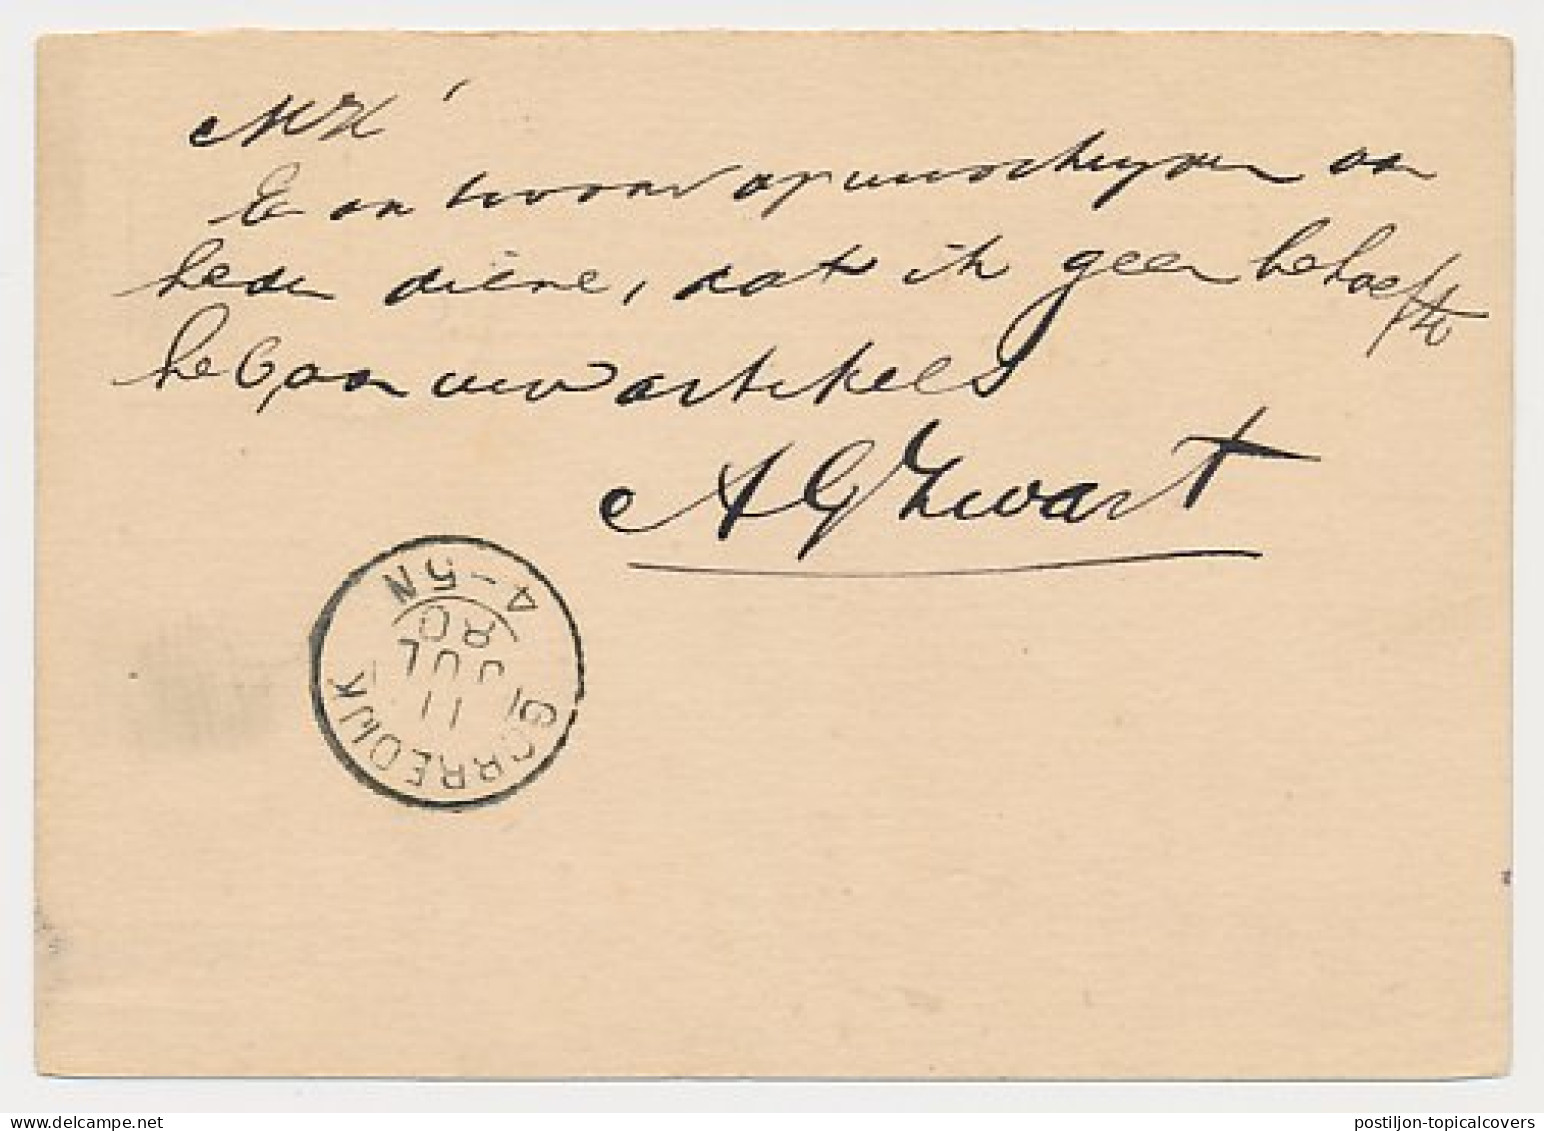 MH
En antwoord op uw schryven van
heden diene, dat ik geen behoefte
heb aan uw artikels
A G Zwart
GORREDIJK
11
JUL
80
4-5N
postiljon-topicalcovers